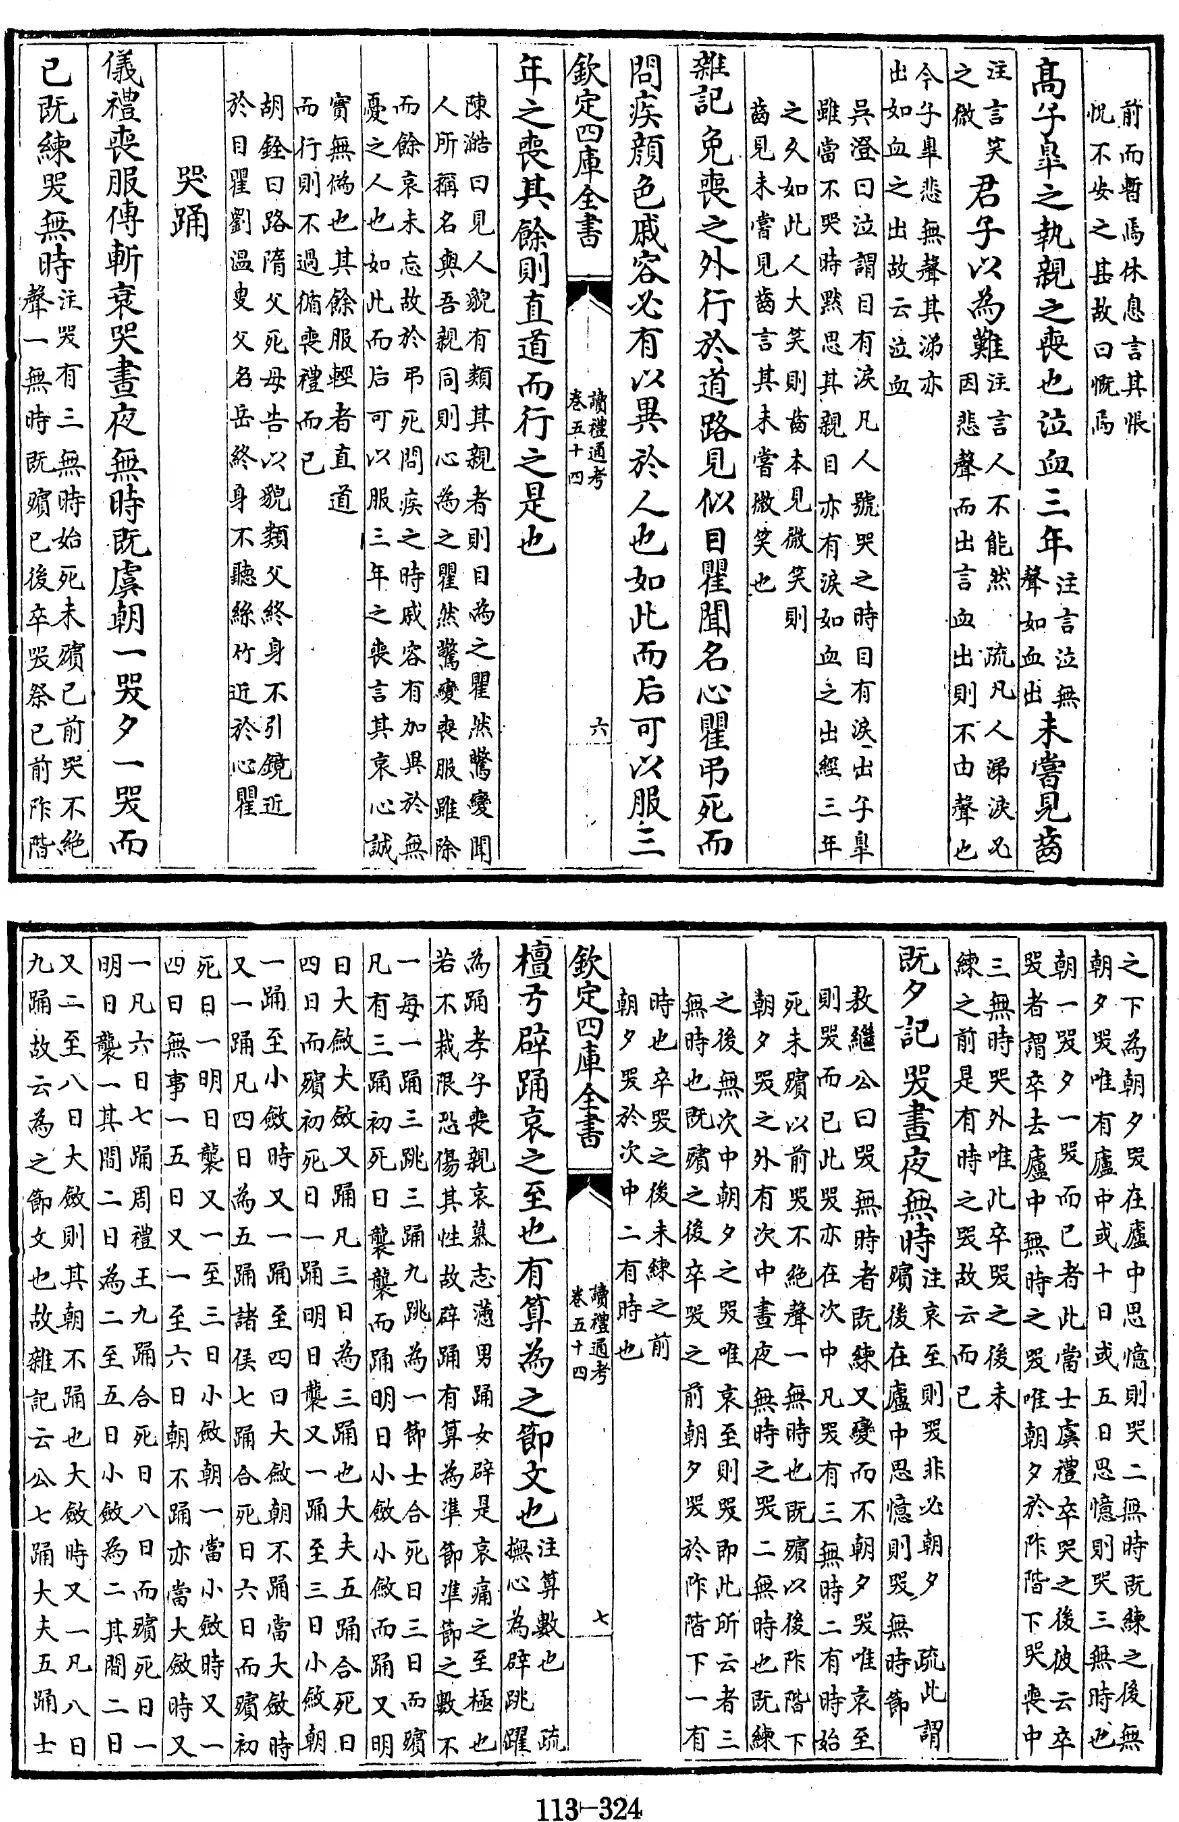 前而暫焉休息言其悵
怳不安之甚故曰慨焉
高子臯之執親之喪也泣血三年注言泣無聲如血出未嘗見齒
注言笑之微君子以為難注言人不能然 疏凡人涕淚必因悲聲而出言血出則不由聲也
今子臯悲無聲其涕亦
出如血之出故云泣血
吳澄曰泣謂目有淚凡人號哭之時目有淚出子臯
雖當不哭時黙思其親目亦有淚如血之出經三年
之久如此人大笑則齒本見微笑則
齒見未嘗見齒言其未嘗微笑也
雜記免喪之外行於道路見似目瞿聞名心瞿弔死而
問疾顔色戚容必有以異於人也如此而后可以服三
欽定四庫全書
讀禮通考
卷五十四
六
年之喪其餘則直道而行之是也
陳澔曰見人貌有類其親者則目為之瞿然驚變聞
人所稱名與吾親同則心為之瞿然驚變喪服雖除
而餘哀未忘故於弔死問疾之時戚容有加異於無
憂之人也如此而后可以服三年之喪言其哀心誠
實無偽也其餘服輕者直道
而行則不過循喪禮而已
胡銓曰路隋父死母告以貌類父終身不引鏡近
於目瞿劉温叟父名岳終身不聽絲竹近於心瞿
哭踊
儀禮喪服傳斬衰哭晝夜無時既虞朝一哭夕一哭而
已既練哭無時注哭有三無時始死未殯已前哭不絶聲一無時既殯已後卒哭祭已前阼階
之下為朝夕哭在廬中思憶則哭二無時既練之後無
朝夕哭唯有廬中或十日或五日思憶則哭三無時也
朝一哭夕一哭而已者此當士虞禮卒哭之後彼云卒
哭者謂卒去廬中無時之哭唯朝夕於阼階下哭喪中
三無時哭外唯此卒哭之後未
練之前是有時之哭故云而已
既夕記哭晝夜無時注哀至則哭非必朝夕 疏此謂殯後在廬中思憶則哭無時節
敖繼公曰哭無時者既練又變而不朝夕哭唯哀至
則哭而已此哭亦在次中凡哭有三無時二有時始
死未殯以前哭不絶聲一無時也既殯以後阼階下
朝夕哭之外有次中晝夜無時之哭二無時也既練
之後無次中朝夕之哭唯哀至則哭即此所云者三
無時也既殯之後卒哭之前朝夕哭於阼階下一有
時也卒哭之後未練之前
朝夕哭於次中二有時也
欽定四庫全書
讀禮通考
卷五十四
七
檀弓辟踊哀之至也有算為之節文也注算數也 疏撫心為辟跳躍
為踊孝子喪親哀慕志懣男踊女辟是哀痛之至極也
若不裁限恐傷其性故辟踊有算為準節準節之數不
一每一踊三跳三踊九跳為一節士合死日三日而殯
凡有三踊初死日襲襲而踊明日小斂小斂而踊又明
日大斂大斂又踊凡三日為三踊也大夫五踊合死日
四日而殯初死日一踊明日襲又一踊至三日小斂朝
一踊至小斂時又一踊至四日大斂朝不踊當大斂時
又一踊凡四日為五踊諸侯七踊合死日六日而殯初
死日一明日襲又一至三日小斂朝一當小斂時又一
四日無事一五日又一至六日朝不踊亦當大斂時又
一凡六日七踊周禮王九踊合死日八日而殯死日一
明日襲一其間二日為二至五日小斂為二其間二日
又二至八日大斂則其朝不踊也大斂時又一凡八日
九踊故云為之節文也故雜記云公七踊大夫五踊士
113-324